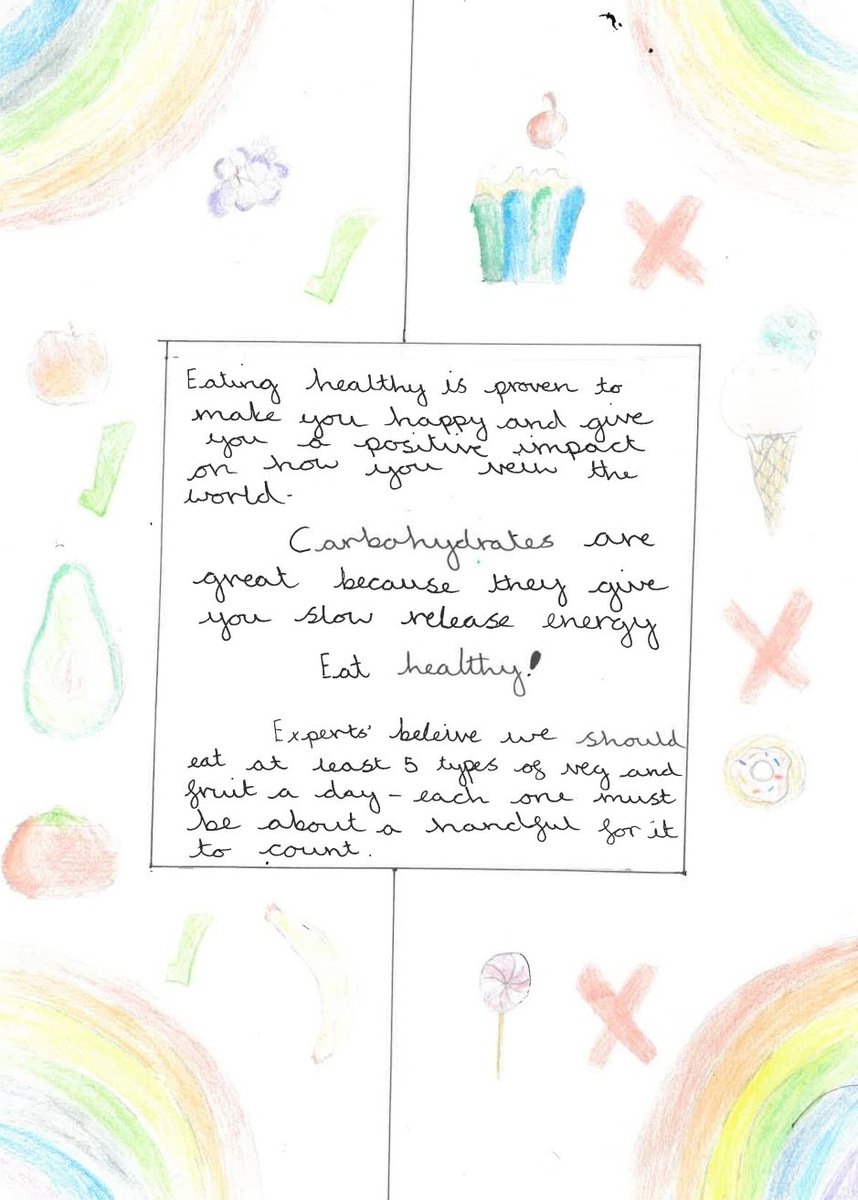 Eating healthy is proven to
make you happy and give
you a positive impact
on how you veiw the
world.
Carbohydrates are
great because they give
you slow release energy
Eat healthy!
Experts' beleive we should
eat at least 5 types of veg and
fruit a day - each one must
be about a handful for it
to count.